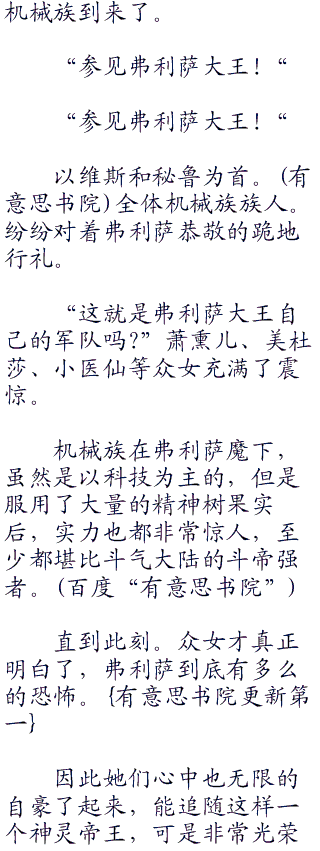 机械族到来了。
“参见弗利萨大王！“
“参见弗利萨大王！“
以维斯和秘鲁为首。(有
意思书院)全体机械族族人。
纷纷对着弗利萨恭敬的跪地
行礼。
“这就是弗利萨大王自
己的军队吗?”萧熏儿、美杜
莎、小医仙等众女充满了震
惊。
机械族在弗利萨魔下，
虽然是以科技为主的，但是
服用了大量的精神树果实
后，实力也都非常惊人，至
少都堪比斗气大陆的斗帝强
者。(百度“有意思书院”)
直到此刻。众女才真正
明白了，弗利萨到底有多么
的恐怖。{有意思书院更新第
一}
因此她们心中也无限的
自豪了起来，能追随这样一
个神灵帝王，可是非常光荣